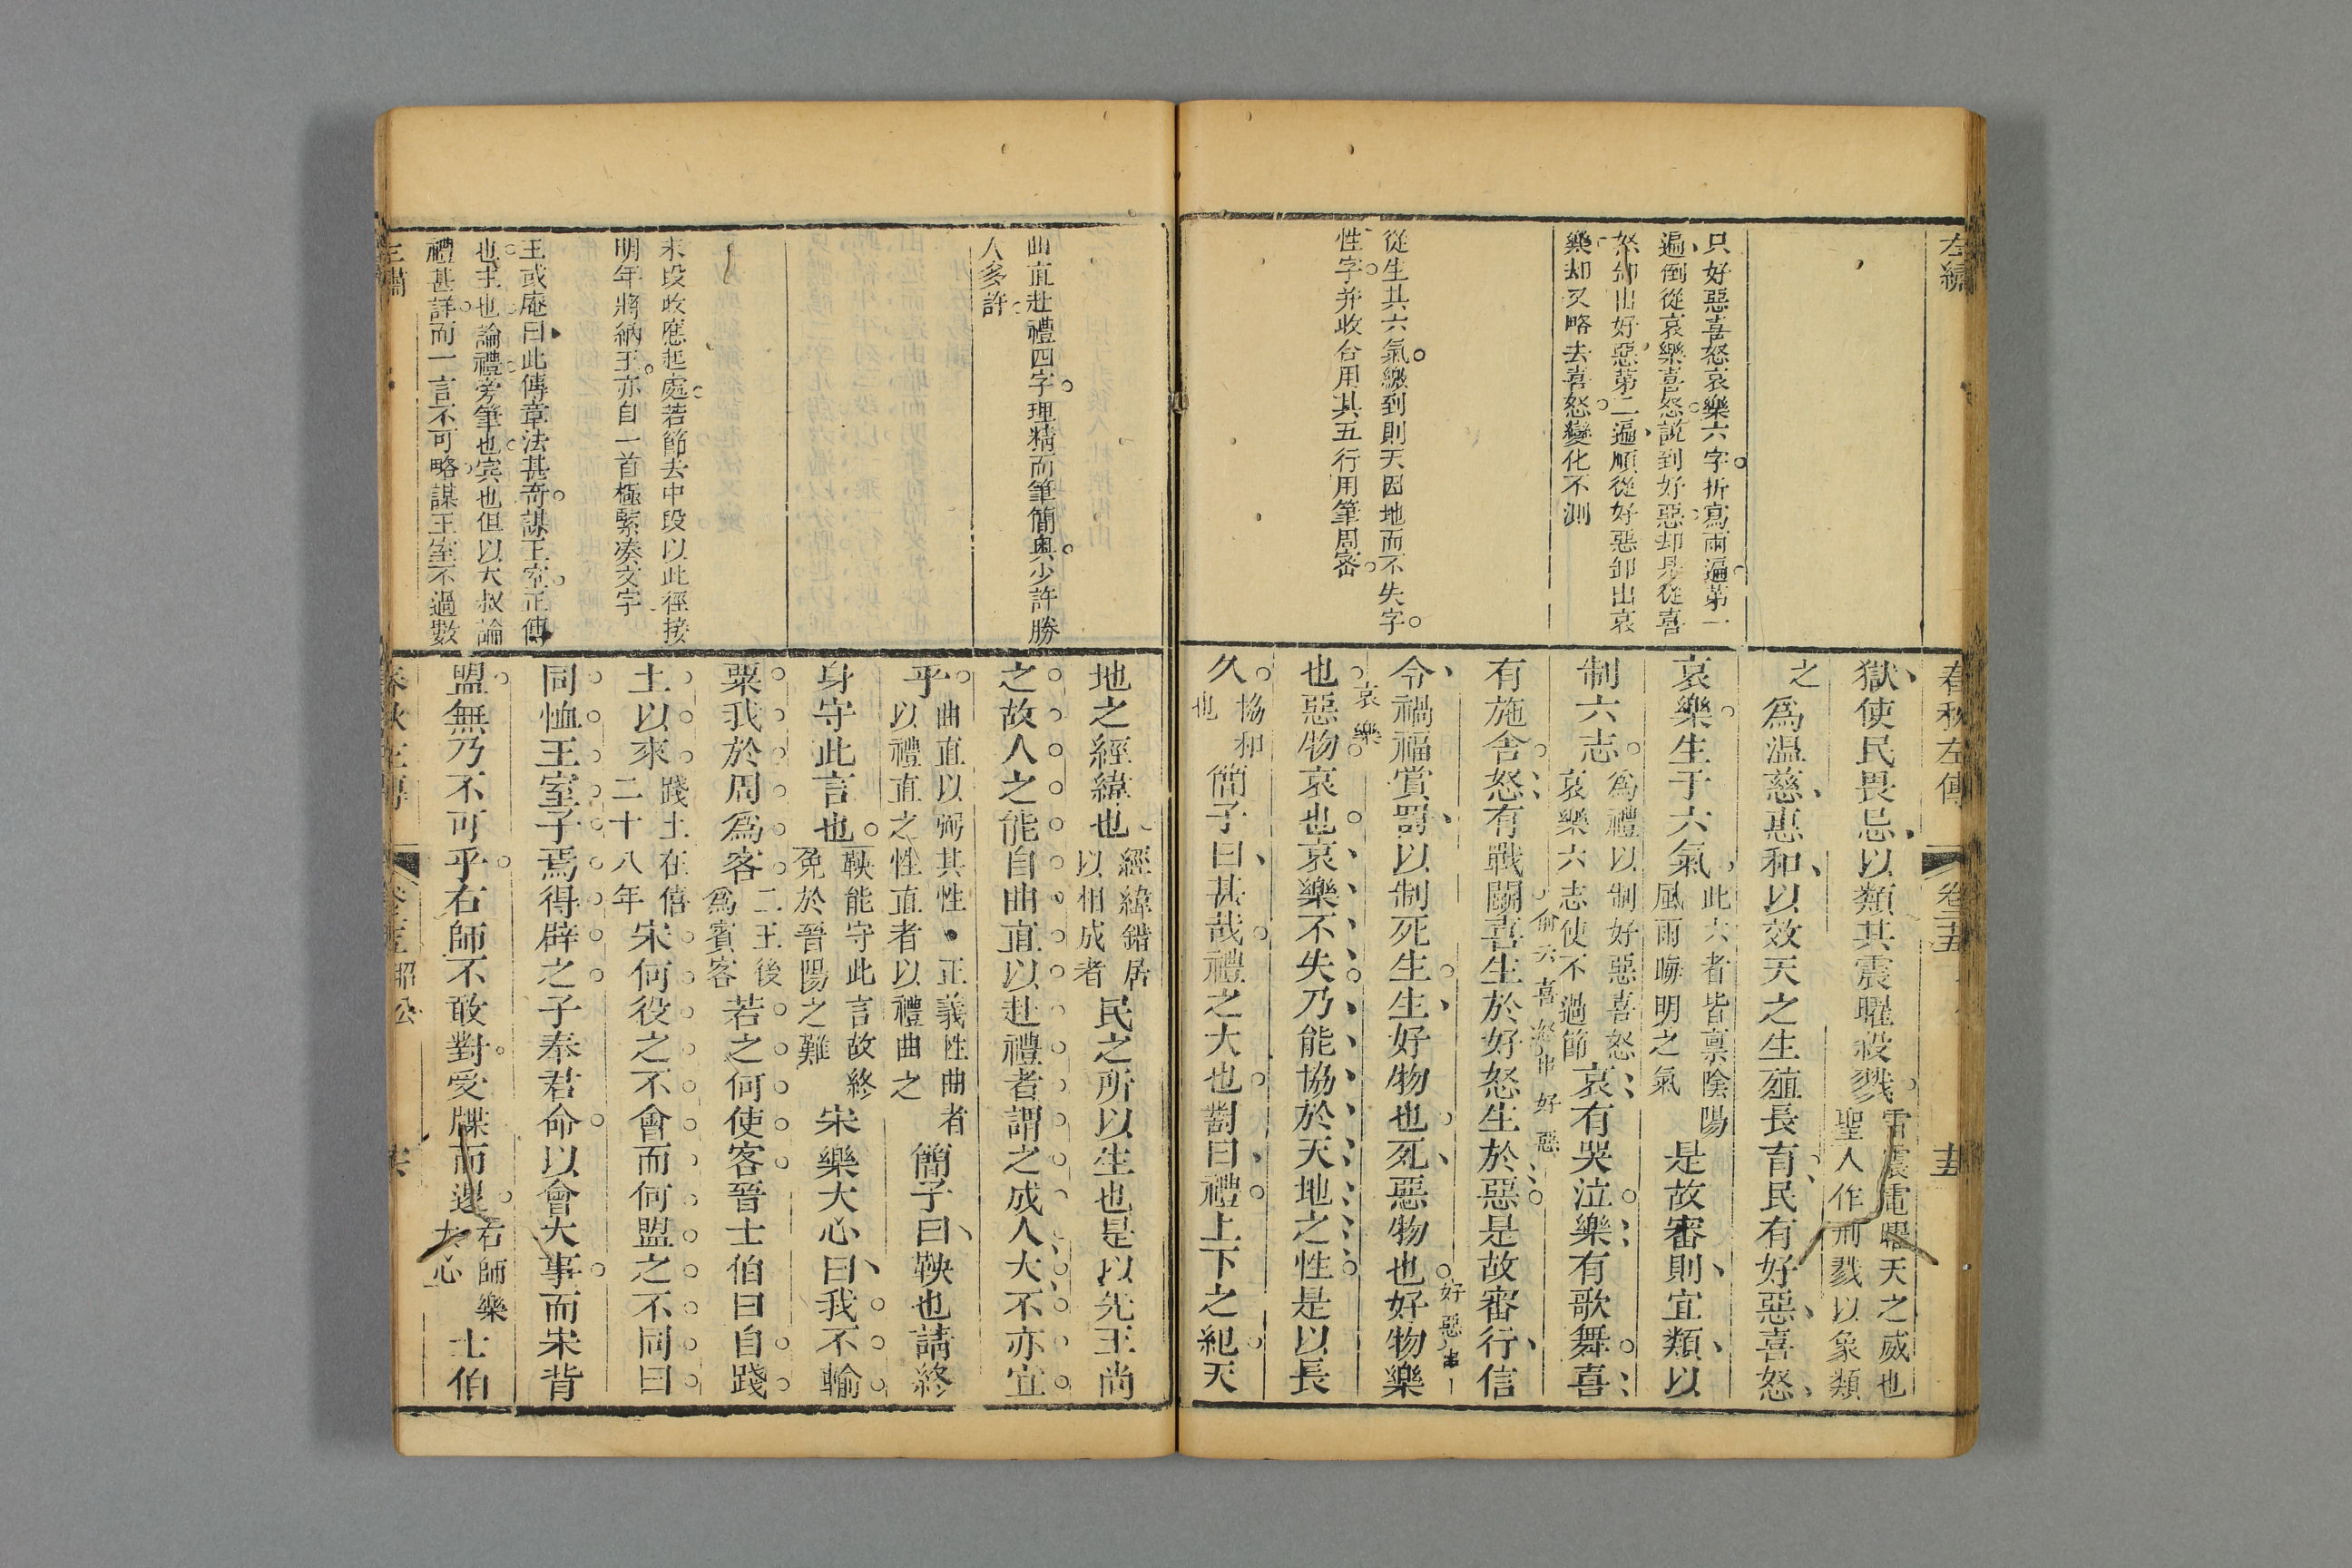 左繡
只好惡喜怒哀樂六字折寫兩遍第一
遍倒從哀樂喜怒說到好惡却是從喜
怒卸出好惡第二遍順從好惡卸出哀
樂却又略去喜怒變化不測
從生其六氣繳到則天因地而不失字
性字并收合用其五行用筆周密
春秋左傳 卷二十五 十五
獄使民畏忌以類其震曜殺戮
雷震電曜天之威也
聖人作刑戮以象類
之
為溫慈惠和以效天之生殖長育民有好惡喜怒
哀樂生于六氣
此六者皆禀陰陽
風雨晦明之氣
是故審則宜類以
制六志
為禮以制好惡喜怒
哀樂六志使不過節
哀有哭泣樂有歌舞喜
有施舍怒有戰鬭喜生於好怒生於惡是故審行信
令禍福賞罰以制死生生好物也死惡物也好物樂
好惡串
也惡物哀也哀樂不失乃能協於天地之性是以長
哀樂
久
協和
也
簡子曰甚哉禮之大也對曰禮上下之紀天
曲直赴禮四字理精而筆簡奧少許勝
人多許
末段收應起處若節去中段以此徑接
明年將納王亦自一首極緊凑文字
王或庵曰此傳章法甚奇謀王室正傳
也主也論禮旁筆也宾也但以大叔論
禮甚詳而一言不可略謀王室不過數
地之經緯也
經緯錯居
以相成者
民之所以生也是以先王尚
之故人之能自曲直以赴禮者謂之成人大不亦宜
乎
曲直以弼其性正義性曲者
以禮直之性直者以禮曲之
簡子曰鞅也請終
身守此言也
鞅能守此言故終
免於晉陽之難
宋樂大心曰我不輸
粟我於周為客
二王後
為賓客
若之何使客晉士伯曰自踐
土以來
踐土在僖
二十八年
宋何役之不會而何盟之不同曰
同恤王室子焉得辟之子奉君命以會大事而宋背
盟無乃不可乎右師不敢對受牒而退
右師樂
大心
士伯
昭公